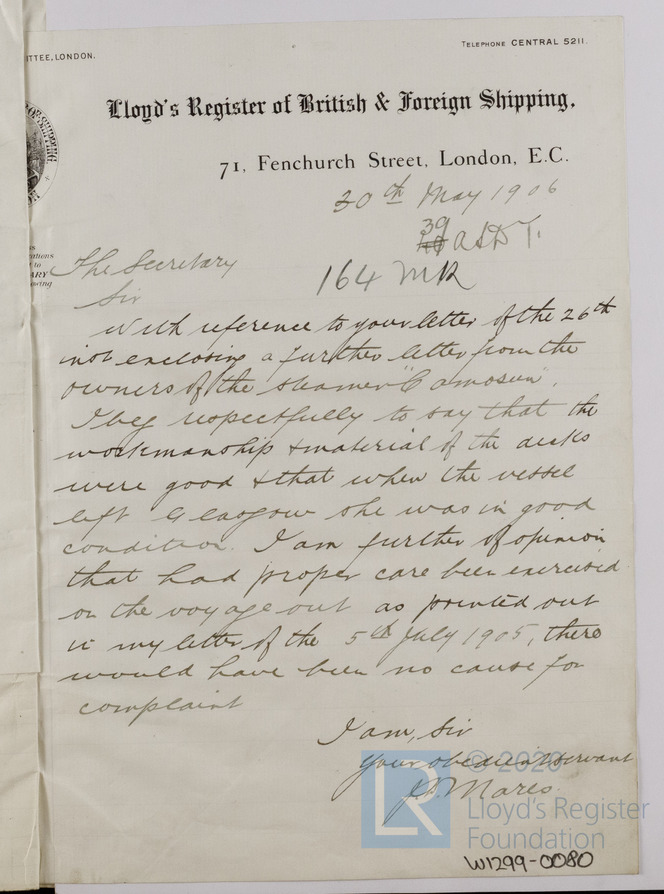 ITTEE, LONDON.
TELEPHONE CENTRAL 5211.
Lloyd's Register of British & Foreign Shipping,
71, Fenchurch Street, London, E.C.
30th May 1906
39
164 MR
The Secretary
Sir
With reference to your letter of the 26th
inst enclosing a further letter from the
owners of the steamer "Camosun",
I beg respectfully to say that the
workmanship & material of the decks
were good & that when the vessel
left Glasgow she was in good
condition. I am further of opinion
that had proper care been exercised
on the voyage out as pointed out
in my letter of the 5th July 1905, there
would have been no cause for
complaint
I am, Sir
Your obedient servant
© 2020
LR
Lloyd's Register
Foundation
W1299-0080